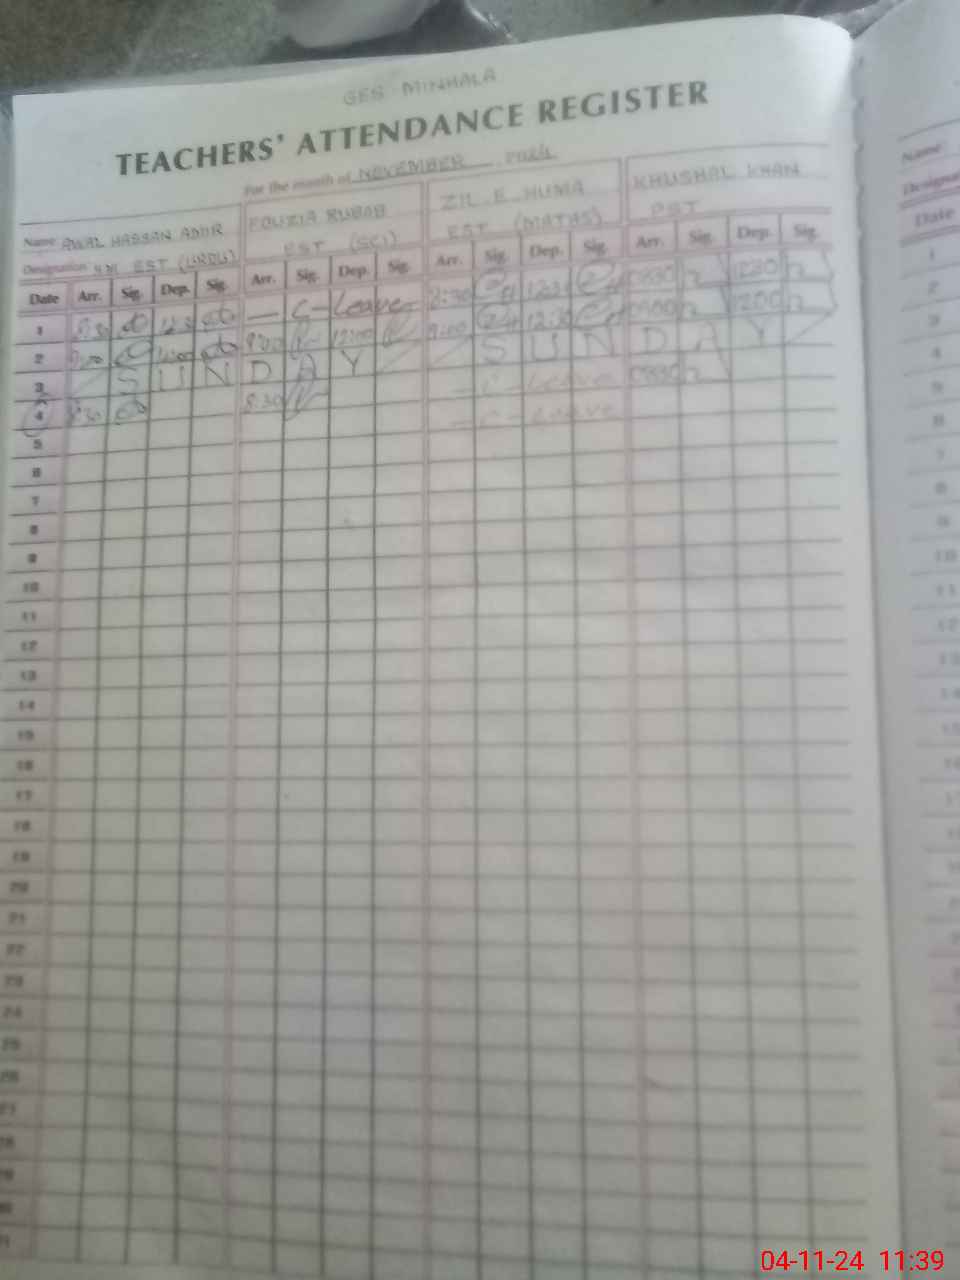 GES MINHALA
TEACHERS' ATTENDANCE REGISTER
For the month of NOVEMBER 2024
Name AWAL HASSAN FOUZIA RUBAB ZIL E HUMA KHUSHAL KHAN
Designation EST (URDU) EST (SCI) EST (MATHS) PST
Date Arr. Sig. Dep. Sig. Arr. Sig. Dep. Sig. Arr. Sig. Dep. Sig. Arr. Sig. Dep. Sig.
1 8:30 — C-Leave 8:30 12:30 0830 1230
2 9:00 12:00 9:00 12:00 9:00 12:30 0900 1200
3 SUNDAY SUNDAY
4 8:30 8:30 — C-Leave 0830
5 — C-Leave
6
7
8
9
10
11
12
13
14
15
16
17
18
19
20
21
22
23
24
25
26
27
28
29
Name
Designa
Date
1
2
3
4
5
6
7
8
9
10
11
12
13
14
15
04-11-24 11:39